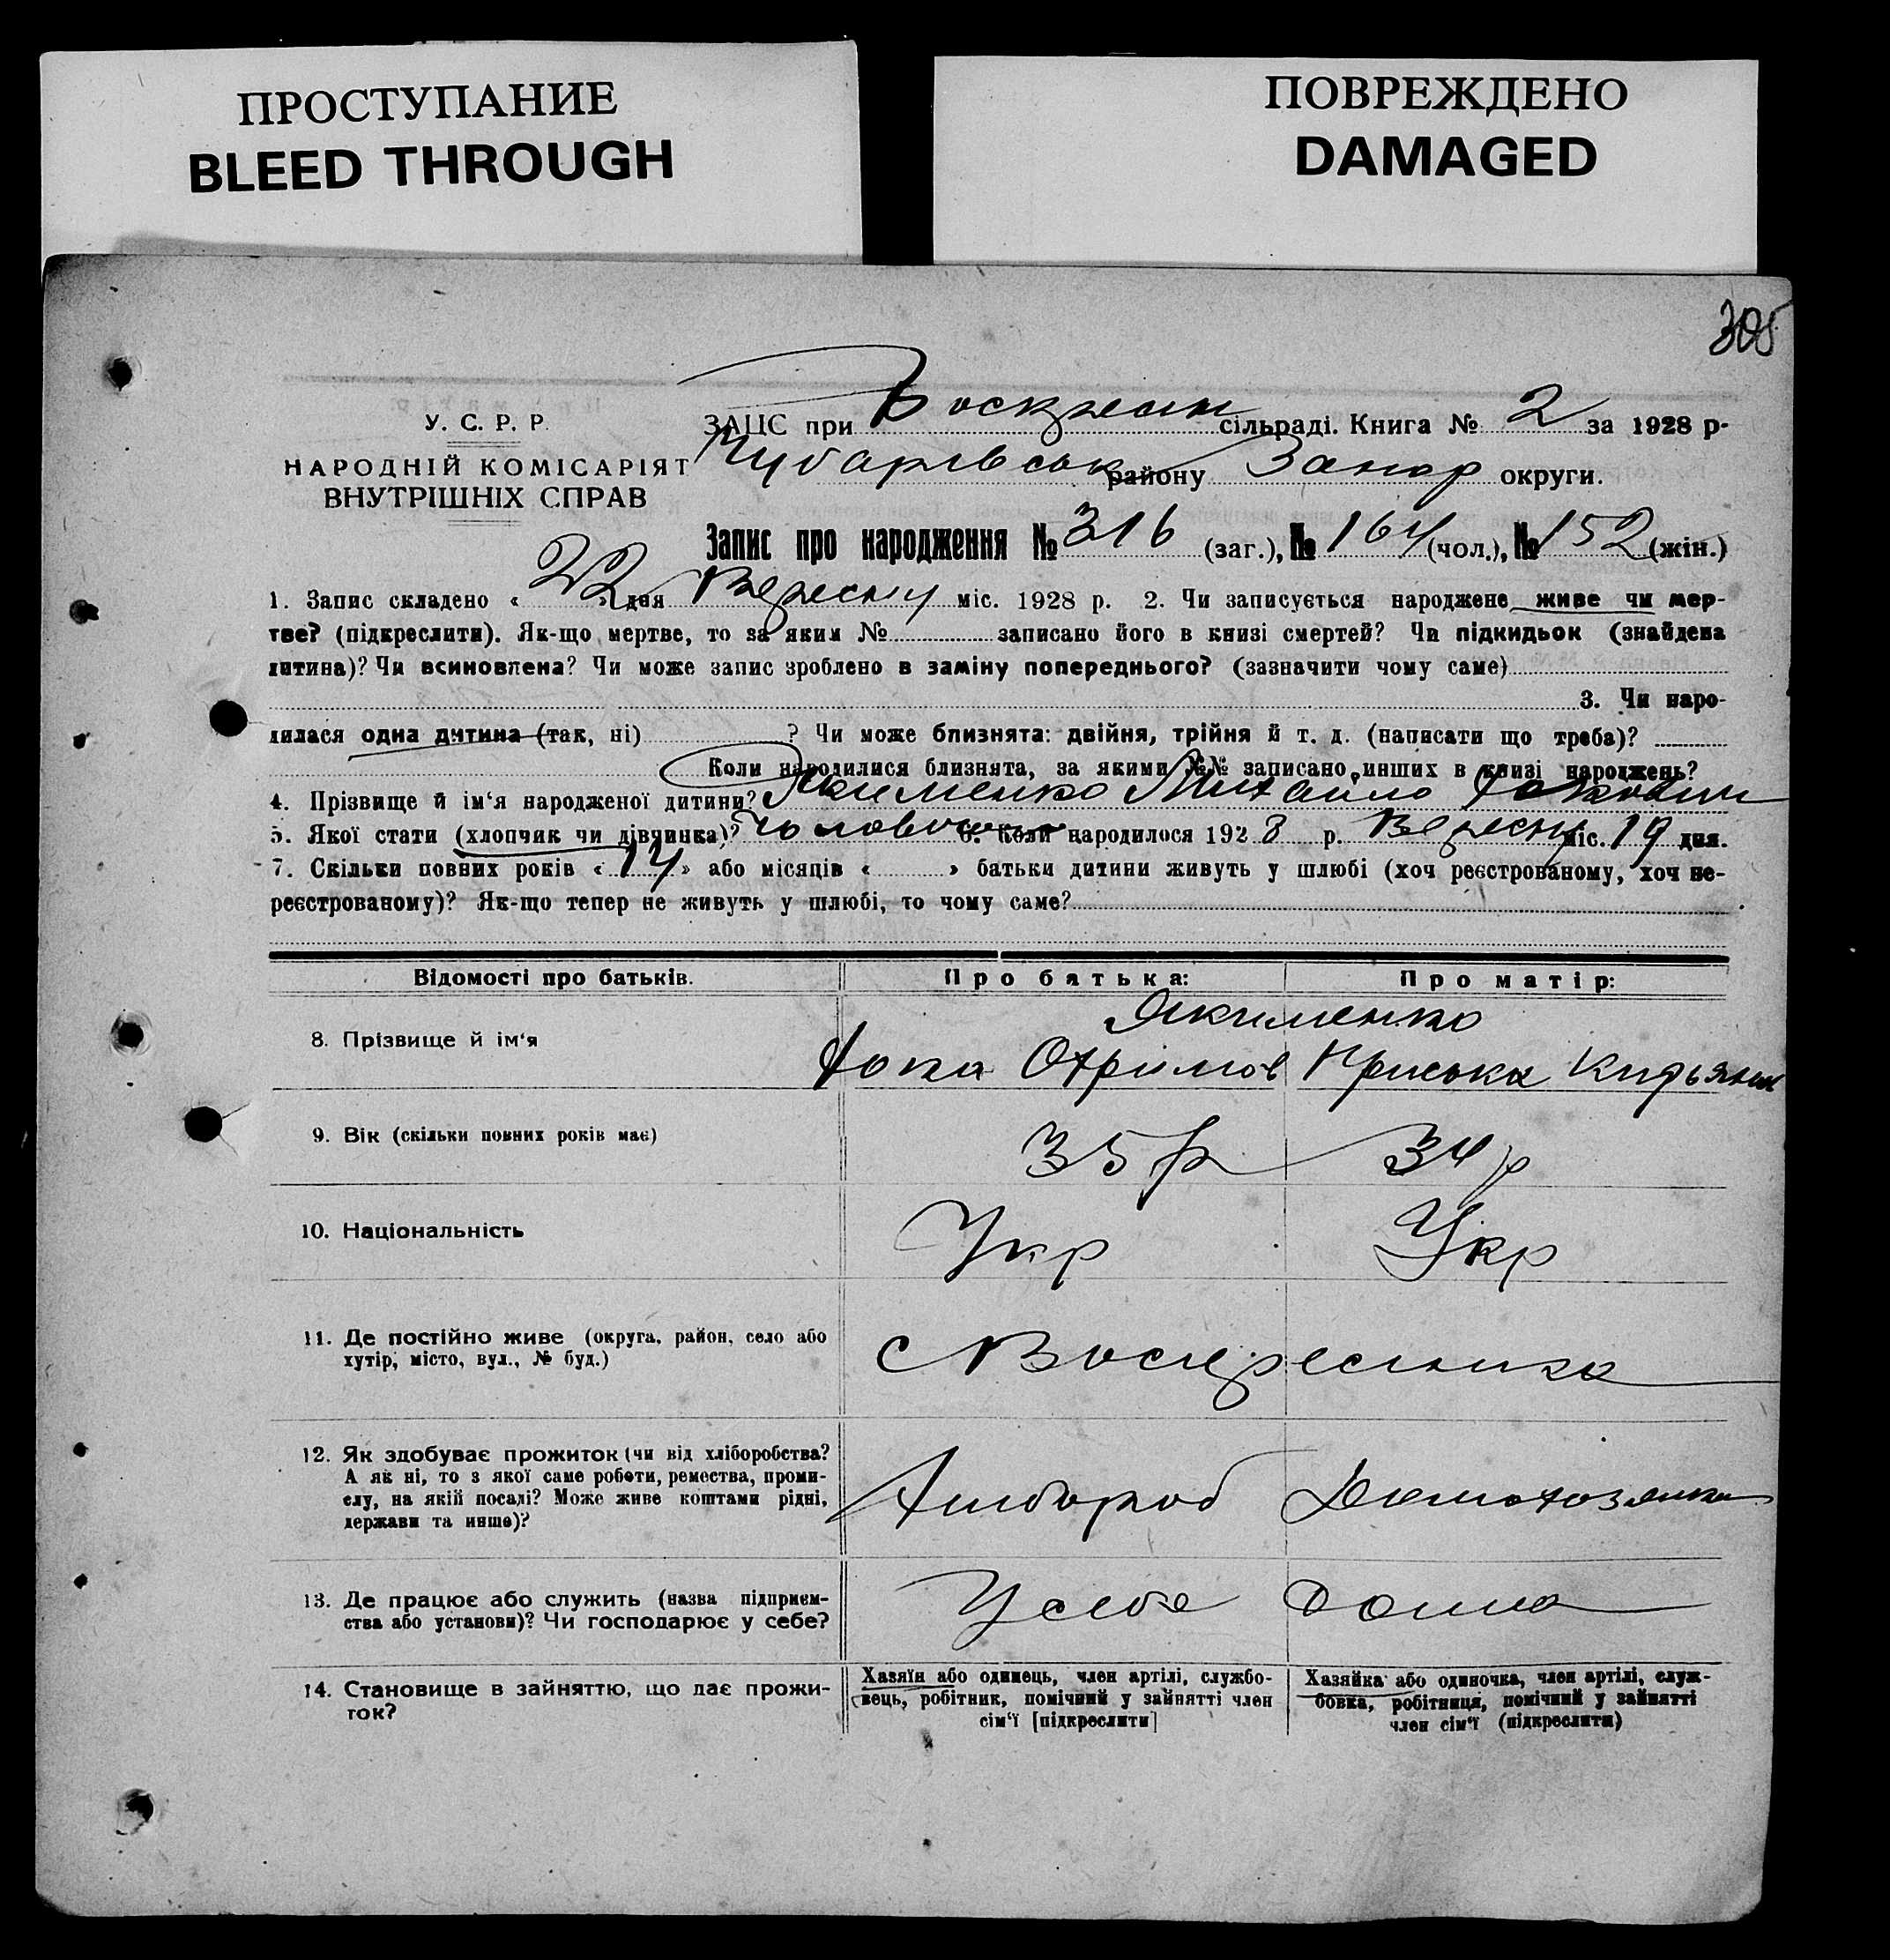 ПРОСТУПАНИЕ
BLEED THROUGH
ПОВРЕЖДЕНО
DAMAGED
305
У. С. Р. Р.
НАРОДНІЙ КОМІСАРІЯТ
ВНУТРІШНІХ СПРАВ
ЗАЦС при сільраді. Книга № 2 за 1928 р.
Чубарівськ району Запор округи.
Запис про народження № 316 (заг.), № 164 (чол.), № 152 (жін.)
1. Запис складено « 22 » дня Вересня міс. 1928 р. 2. Чи записується народжене живе чи мер-
тве? (підкреслити). Як-що мертве, то за яким № записано його в книзі смертей? Чи підкидьок (знайдена
дитина)? Чи всиновлена? Чи може запис зроблено в заміну попереднього? (зазначити чому саме)
3. Чи наро-
дилася одна дитина (так, ні) ? Чи може близнята: двійня, трійня й т. д. (написати що треба)?
Коли народилися близнята, за якими №№ записано инших в книзі народжень?
4. Прізвище й ім'я народженої дитини? Якименко Михайло
5. Якої стати (хлопчик чи дівчинка)? 6. Коли народилося 1928 р. Вересня міс. 19 дня.
7. Скільки повних років « 14 » або місяців « » батьки дитини живуть у шлюбі (хоч реєстрованому, хоч не-
реєстрованому)? Як-що тепер не живуть у шлюбі, то чому саме?
Відомості про батьків.
Про батька:
Про матір:
8. Прізвище й ім'я
Якименко
Хома Охрімов Приська
9. Вік (скільки повних років має)
35 р 34 р
10. Національність
Укр Укр
11. Де постійно живе (округа, район, село або
хутір, місто, вул., № буд.)
с Воскресенка
12. Як здобуває прожиток (чи від хліборобства?
А як ні, то з якої саме роботи, ремества, проми-
слу, на якій посаді? Може живе коштами рідні,
держави та инше)?
Хлібороб Домохозяйка
13. Де працює або служить (назва підприєм-
ства або установи)? Чи господарює у себе?
У себе Дома
14. Становище в зайняттю, що дає прожи-
ток?
Хазяїн або одинець, член артілі, службо-
вець, робітник, помічний у зайнятті член
сім'ї [підкреслити]
Хазяйка або одиночка, член артілі, служ-
бовка, робітниця, помічний у зайнятті
член сім'ї (підкреслити)